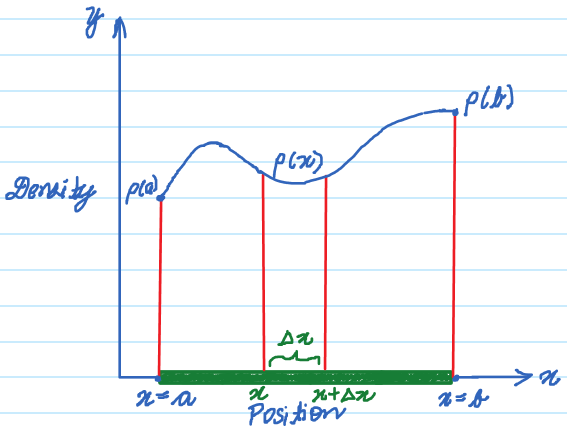 y
ρ(b)
ρ(x)
Density
ρ(a)
Δx
x
x=a
x
x+Δx
x=b
Position